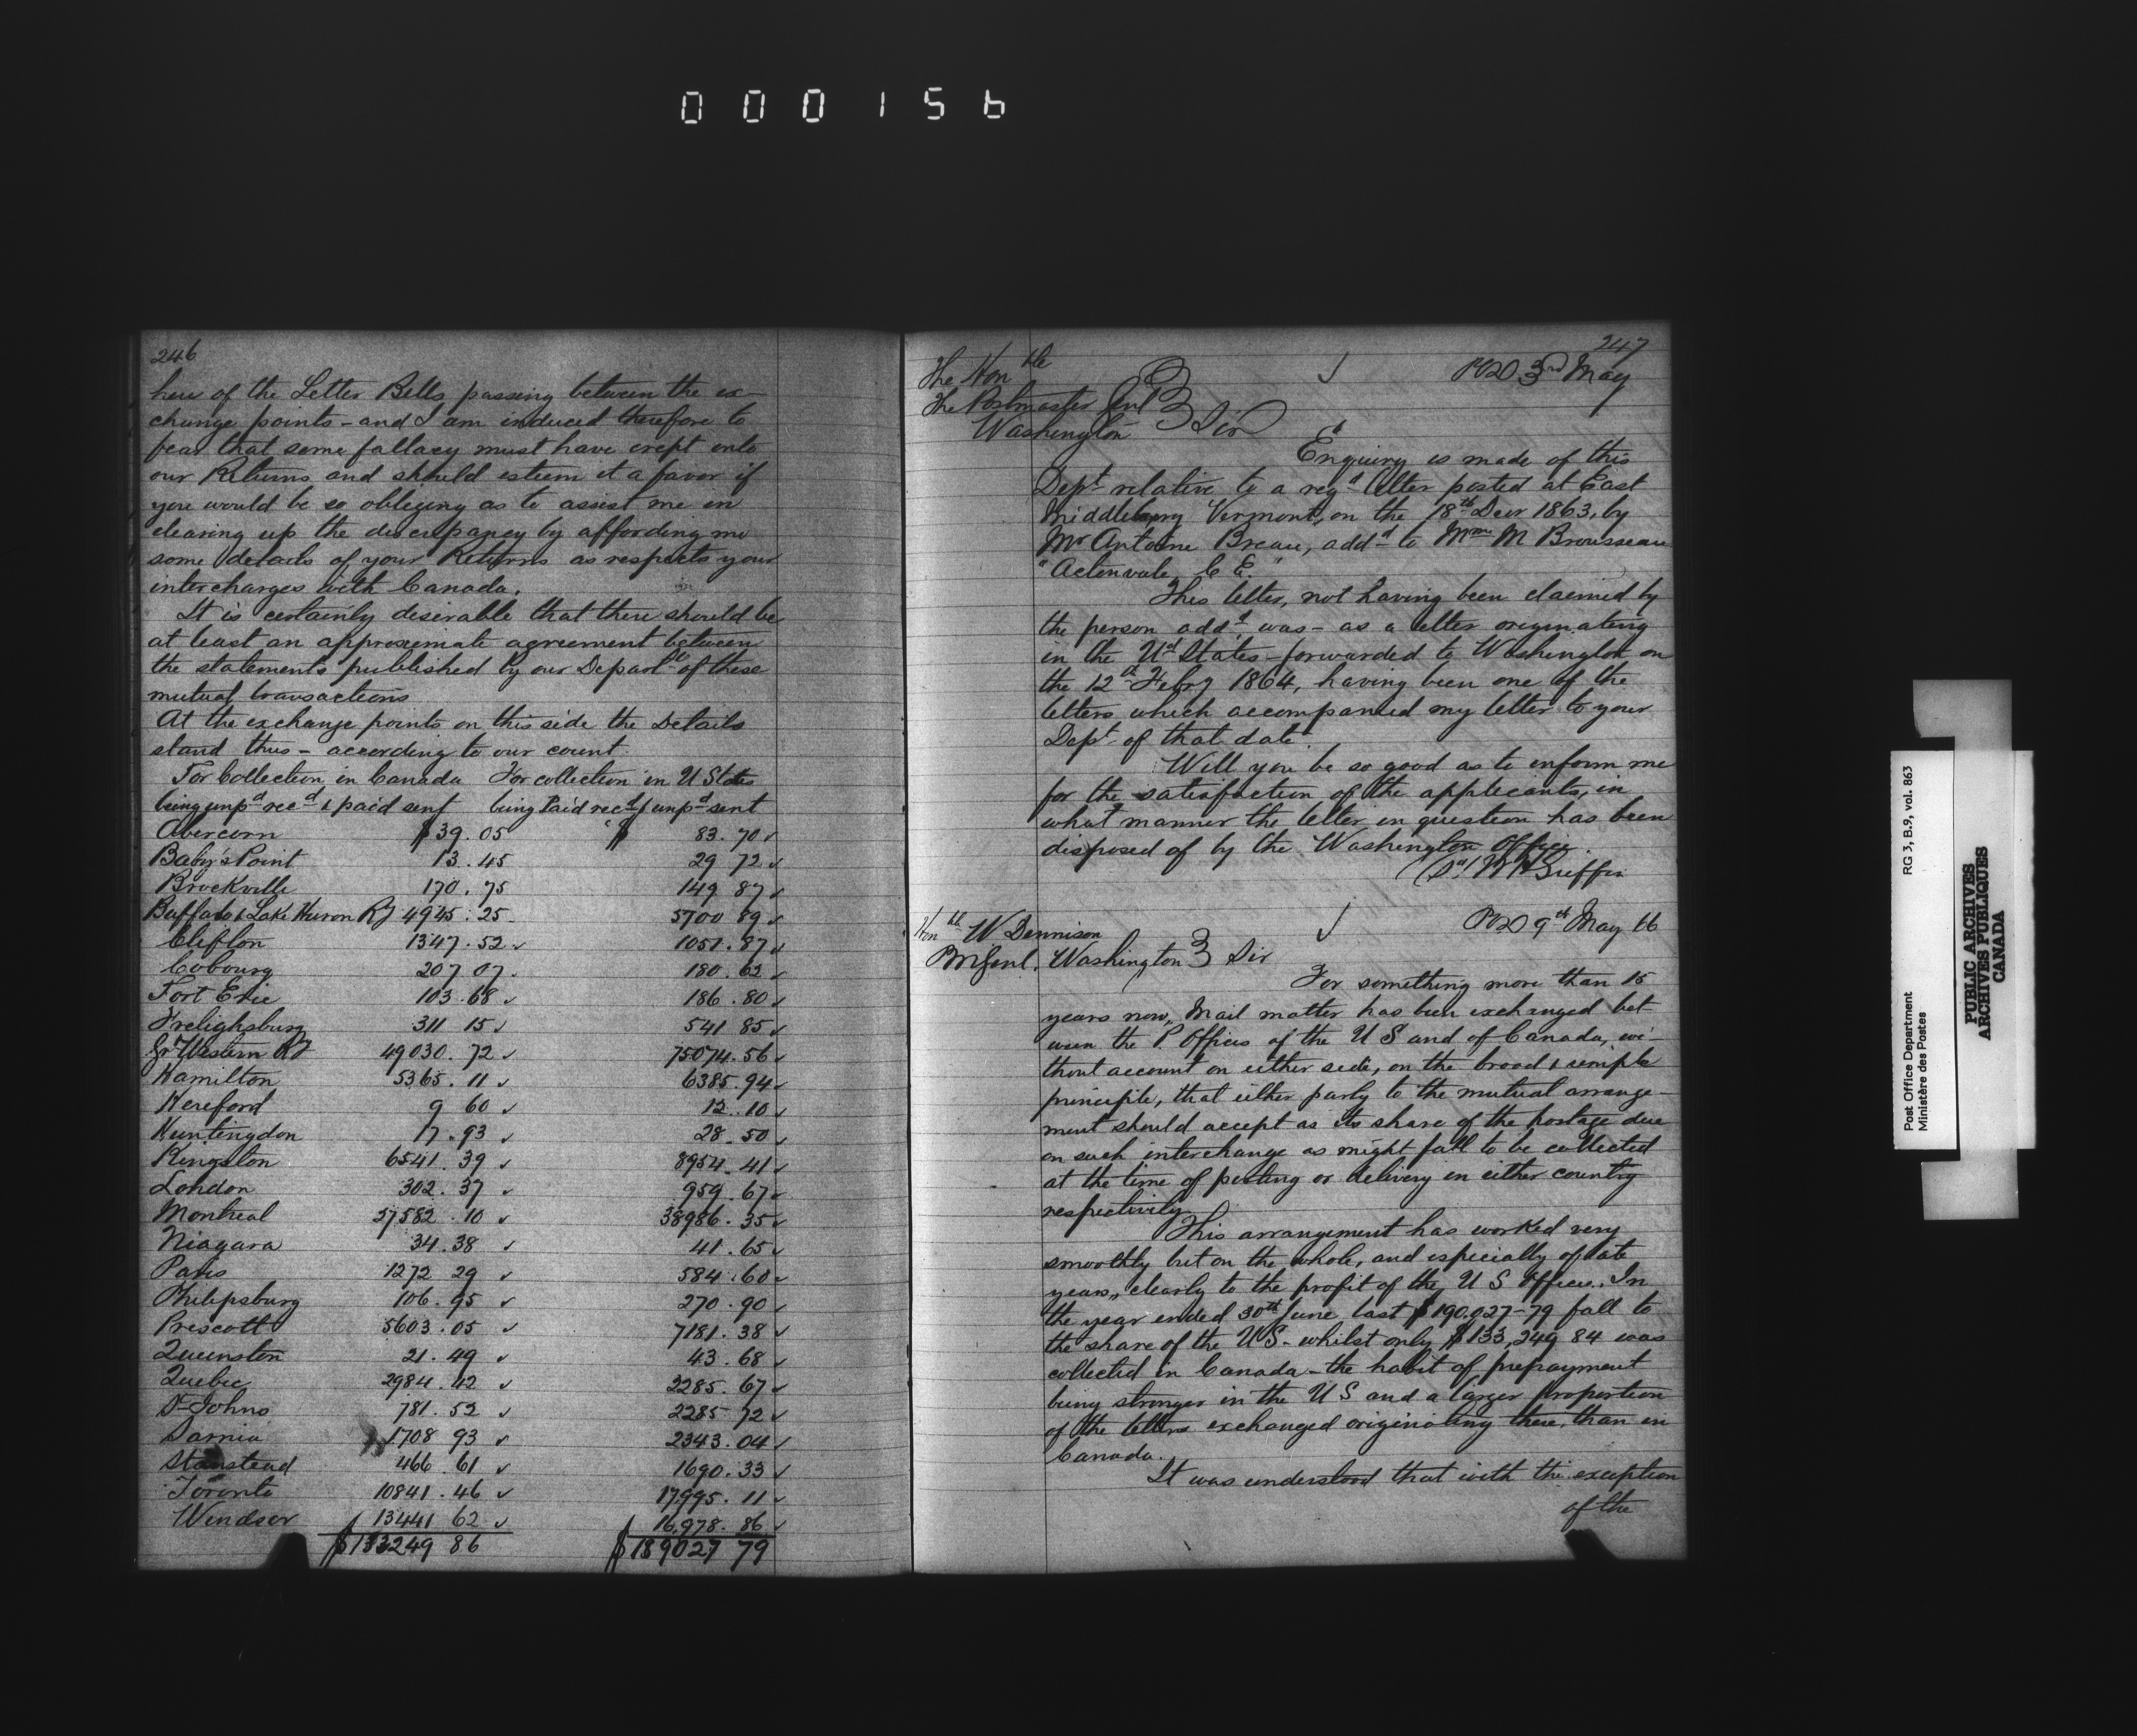 000156
246
here of the Letter Bills passing between the ex-
change points - and I am induced therefore to
fear that some fallacy must have crept into
our Returns and should esteem it a favor if
you would be so obliging as to assist me in
clearing up the discrepancy by affording me
some details of your Returns as respects your
interchanges with Canada.
It is certainly desirable that there should be
at least an approximate agreement between
the statements published by our Departts of these
mutual transactions
At the exchange points on this side the Details
stand thus - according to our count.
For Collection in Canada For collection in U States
being unpd recd & paid sent being Paid recd & unpd sent
Abercorn $39.05 $83.70
Baby's Point 13.45 29 72
Brockville 170.75 149 87
Buffalo & Lake Huron Ry 4945.25 5700 89
Clifton 1347.52 1051.87
Cobourg 207 07 180.62
Fort Erie 103.68 186.80
Frelighsburg 311 15 541 85
Gr Western Ry 49030.72 75074.56
Hamilton 5365.11 6385.94
Hereford 9 60 12.10
Huntingdon 17.93 28.50
Kingston 6541.39 8954.41
London 302.37 959.67
Montreal 27582.10 38986.35
Niagara 34.38 41.65
Paris 1272 29 584.60
Philipsburg 106.95 270.90
Prescott 5603.05 7181.38
Queenston 21.49 43.68
Quebec 2984.42 2285.67
St Johns 781.52 2285 72
Sarnia 1708 93 2343.04
Stanstead 466.61 1690.33
Toronto 10841.46 17995.11
Windsor 13441 62 16,978.86
$133249 86 $189027 79
247
The Honble
The Postmaster Genl
Washington
POD 3rd May
Sir
Enquiry is made of this
Dept relative to a regd letter posted at East
Middlebury Vermont, on the 18th Decr 1863, by
Mr Antoine Breau, addd to Mme M Brousseau
"Actonvale C E."
This letter, not having been claimed by
the person addd, was - as a letter originating
in the Ud States - forwarded to Washington on
the 12th Febry 1864, having been one of the
letters which accompanied my letter to your
Dept of that date.
Will you be so good as to inform me
for the satisfaction of the applicants, in
what manner the letter in question has been
disposed of by the Washington Office.
(Sd) W H Griffin
Honble W Dennison
PMGenl. Washington
POD 9th May 66
Sir
For something more than 15
years now, Mail matter has been exchanged bet
ween the P. Offices of the U S and of Canada, wi-
thout account on either side, on the broad & simple
principle, that either party to the mutual arrange-
ment should accept as its share of the postage due
on such interchange as might fall to be collected
at the time of posting or delivery in either country
respectively.
This arrangement has worked very
smoothly but on the whole, and especially of late
years, clearly to the profit of the U S Office. In
the year ended 30th June last $190,027-79 fall to
the share of the US - whilst only $133,249 84 was
collected in Canada - the habit of prepayment
being stronger in the U S and a larger proportion
of the letters exchanged originating there, than in
Canada.
It was understood that with the exception
of the
Post Office Department
Ministère des Postes
RG 3, B.9, vol. 863
PUBLIC ARCHIVES
ARCHIVES PUBLIQUES
CANADA